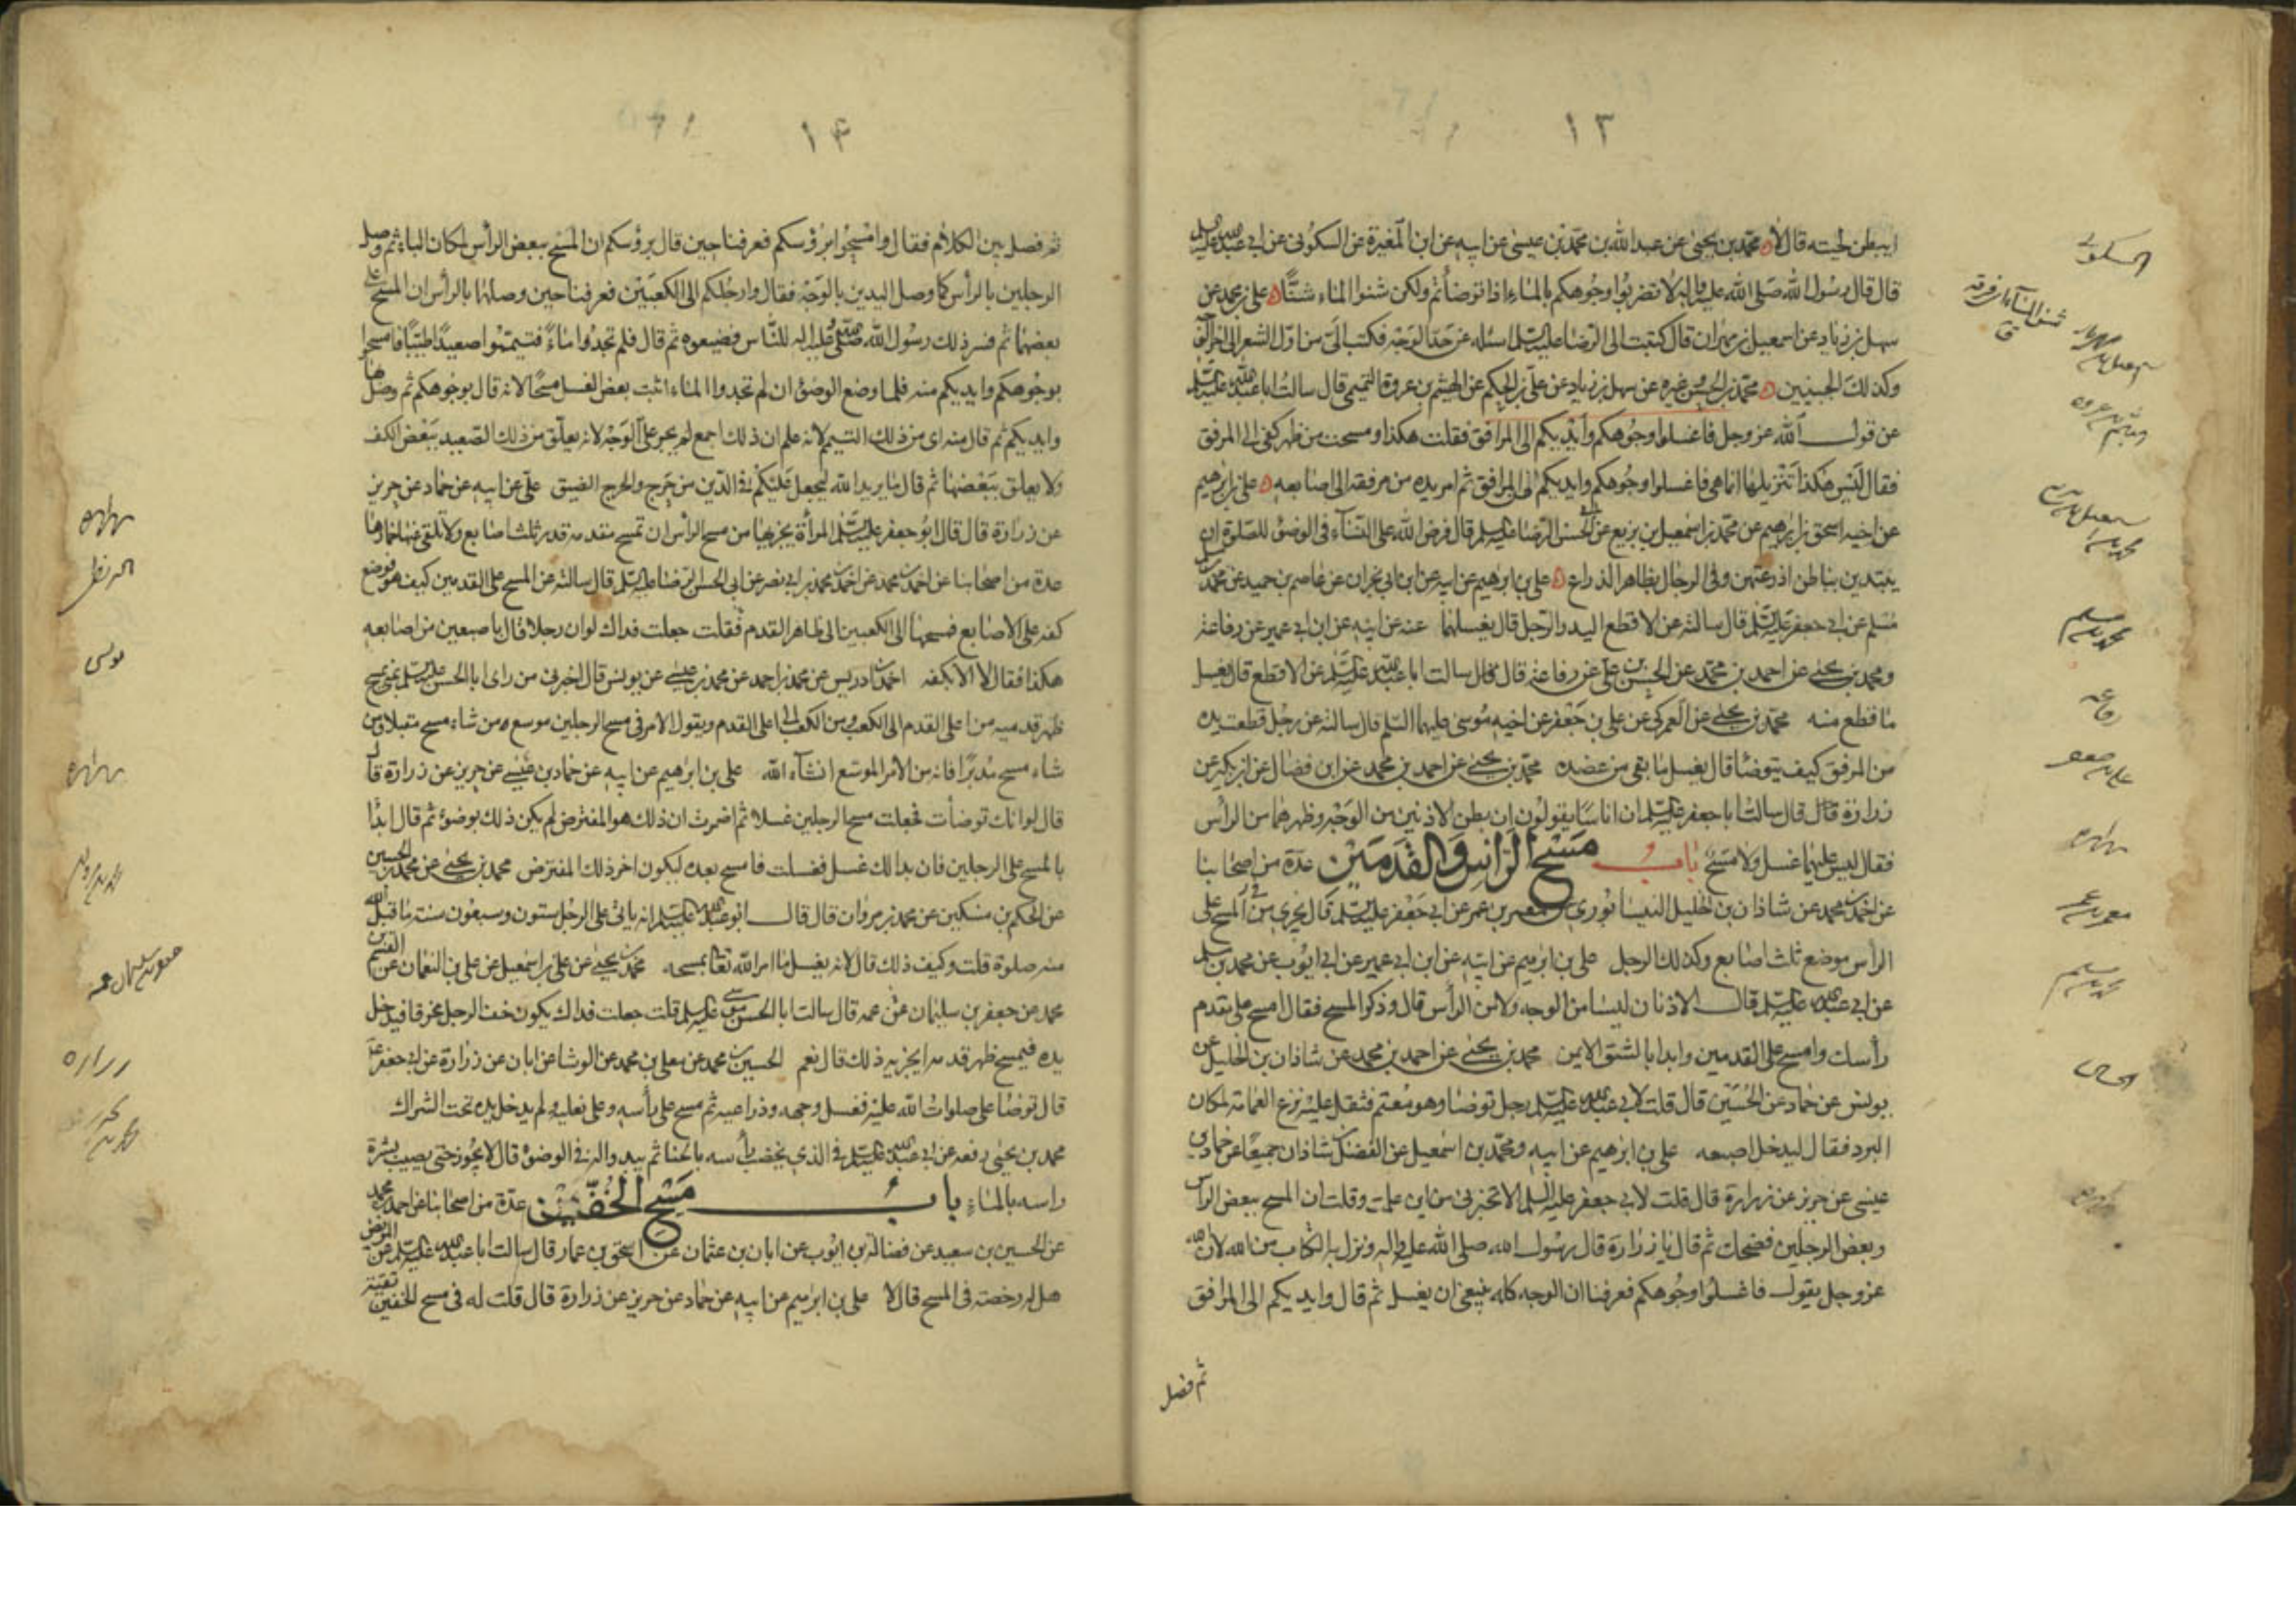 ١٣
ايبطن لحيته قال لا محمد بن يحيى عن عبد الله بن محمد بن عيسى عن ابيه عن ابن المغيرة عن السكونى عن ابى عبد الله عليه السلم
قال قال رسول الله صلى الله عليه واله لا تضربوا وجوهكم بالماء اذا توضأتم ولكن شنوا الماء شنّاً على بن محمد عن
سهل بن زياد عن اسمعيل بن مهران قال كتبت الى الرضا عليه السلم اسئله عن حد الوجه فكتب الىّ من اول الشعر الى اخر الوجه
وكذلك الجبينين محمد بن الحسن وغيره عن سهل بن زياد عن على بن الحكم عن الهيثم بن عروة التميمى قال سالت ابا عبد الله عليه السلم
عن قول الله عز وجل فاغسلوا وجوهكم وايديكم الى المرافق فقلت هكذا ومسحت من ظهر كفى الى المرفق
فقال ليس هكذا تنزيلها انما هى فاغسلوا وجوهكم وايديكم من المرافق ثم امر يده من مرفقه الى اصابعه على بن ابرهيم
عن اخيه اسحق بن ابرهيم عن محمد بن اسمعيل بن بزيع عن ابى الحسن الرضا عليه السلم قال فرض الله على النساء فى الوضوء للصلوة ان
يبتدين بباطن اذرعتهن وفى الرجال بظاهر الذراع على بن ابرهيم عن ابيه عن ابن ابى نجران عن عاصم بن حميد عن محمد بن
مسلم عن ابى جعفر عليه السلم قال سالته عن الاقطع اليد والرجل قال يغسلهما عنه عن ابيه عن ابن ابى عمير عن رفاعة
ومحمد بن يحيى عن احمد بن محمد عن الحسن بن على عن رفاعة قال سالت ابا عبد الله عليه السلم عن الاقطع قال يغسل
ما قطع منه محمد بن يحيى عن العمركى عن على بن جعفر عن اخيه موسى عليهما السلم قال سالته عن رجل قطعت يده
من المرفق كيف يتوضأ قال يغسل ما بقى من عضده محمد بن يحيى عن احمد بن محمد عن ابن فضال عن ابن بكير عن
زرارة قال قال سالت ابا جعفر عليه السلم ان اناسا يقولون ان بطن الاذنين من الوجه وظهرهما من الرأس
فقال ليس عليهما غسل ولا مسح باب مسح الراس والقدمين عدة من اصحابنا
عن احمد بن محمد عن شاذان بن الخليل النيسابورى عن معمر بن عمر عن ابى جعفر عليه السلم قال يجزى من المسح على
الرأس موضع ثلث اصابع وكذلك الرجل على بن ابرهيم عن ابيه عن ابن ابى عمير عن ابى ايوب عن محمد بن مسلم
عن ابى عبد الله عليه السلم قال الاذنان ليسا من الوجه ولا من الرأس قال وذكر المسح فقال امسح على مقدم
رأسك وامسح على القدمين وابدا بالشق الايمن محمد بن يحيى عن احمد بن محمد عن شاذان بن الخليل عن
يونس عن حماد عن الحسين قال قلت لابى عبد الله عليه السلم رجل توضا وهو معتم فثقل عليه نزع العمامة لمكان
البرد فقال ليدخل اصبعه على بن ابرهيم عن ابيه ومحمد بن اسمعيل عن الفضل بن شاذان جميعا عن حماد بن
عيسى عن حريز عن زرارة قال قلت لابى جعفر عليه السلم الا تخبرنى من اين علمت وقلت ان المسح ببعض الرأس
وبعض الرجلين فضحك ثم قال يا زرارة قال رسول الله صلى الله عليه واله ونزل به الكتاب من الله لان الله
عز وجل يقول فاغسلوا وجوهكم فعرفنا ان الوجه كله ينبغى ان يغسل ثم قال وايديكم الى المرافق
ثم فصل
السكونى
محمد بن مسلم
رفاعه
على بن جعفر
زراره
معمر بن عمر
محمد بن مسلم
الحسين
١۴
ثم فصل بين الكلام فقال وامسحوا برؤسكم فعرفنا حين قال برؤسكم ان المسح ببعض الرأس لمكان الباء ثم وصل
الرجلين بالرأس كما وصل اليدين بالوجه فقال وارجلكم الى الكعبين فعرفنا حين وصلها بالرأس ان المسح على
بعضها ثم فسر ذلك رسول الله صلى الله عليه واله للناس فضيعوه ثم قال فلم تجدوا ماءً فتيمموا صعيدا طيبا فامسحوا
بوجوهكم وايديكم منه فلما وضع الوضوء ان لم تجدوا الماء اثبت بعض الغسل مسحا لانه قال بوجوهكم ثم وصل بها
وايديكم ثم قال منه اى من ذلك التيمم لانه علم ان ذلك اجمع لم يجر على الوجه لانه يعلق من ذلك الصعيد ببعض الكف
ولا يعلق ببعضها ثم قال ما يريد الله ليجعل عليكم فى الدين من حرج والحرج الضيق على عن ابيه عن حماد عن حريز
عن زرارة قال قال ابو جعفر عليه السلم المرأة يجزيها من مسح الرأس ان تمسح مقدمه قدر ثلث اصابع ولا تلقى عنها خمارها
عدة من اصحابنا عن احمد بن محمد عن احمد بن محمد بن ابى نصر عن ابى الحسن الرضا عليه السلم قال سالته عن المسح على القدمين كيف هو فوضع
كفه على الاصابع فمسحها الى الكعبين الى ظاهر القدم فقلت جعلت فداك لو ان رجلا قال باصبعين من اصابعه
هكذا فقال لا الا بكفه احمد بن ادريس عن محمد بن احمد عن محمد بن عيسى عن يونس قال اخبرنى من راى ابا الحسن عليه السلم بمنى يمسح
ظهر قدميه من اعلى القدم الى الكعب ومن الكعب الى اعلى القدم ويقول الامر فى مسح الرجلين موسع من شاء مسح مقبلا ومن
شاء مسح مدبرا فانه من الامر الموسع انشاء الله على بن ابرهيم عن ابيه عن حماد بن عيسى عن حريز عن زرارة قال
قال لو انك توضأت فجعلت مسح الرجلين غسلا ثم اضمرت ان ذلك هو المفترض لم يكن ذلك بوضوء ثم قال ابدأ
بالمسح على الرجلين فان بدا لك غسل فغسلت فامسح بعده ليكون اخر ذلك المفترض محمد بن يحيى عن محمد بن الحسين
عن الحكم بن مسكين عن محمد بن مروان قال قال ابو عبد الله عليه السلم انه ياتى على الرجل ستون وسبعون سنة ما قبل الله
منه صلوة قلت وكيف ذلك قال لانه يغسل ما امر الله تعالى بمسحه محمد بن يحيى عن على بن اسمعيل عن على بن النعمان عن القسم بن
محمد عن جعفر بن سليمان عن عمه قال سالت ابا الحسن موسى عليه السلم قلت جعلت فداك يكون خف الرجل مخرقا فيدخل
يده فيمسح ظهر قدمه ايجزيه ذلك قال نعم الحسين بن محمد عن معلى بن محمد عن الوشا عن ابان عن زرارة عن ابى جعفر ع
قال توضا على صلوات الله عليه فغسل وجهه وذراعيه ثم مسح على رأسه وعلى نعليه ولم يدخل يده تحت الشراك
محمد بن يحيى رفعه عن ابى عبد الله عليه السلم فى الذى يخضب رأسه بالحنا ثم يبدو له فى الوضوء قال لا يجوز حتى يصيب بشرة
راسه بالماء باب مسح الخفين عدة من اصحابنا عن احمد بن محمد
عن الحسين بن سعيد عن فضالة بن ايوب عن ابان بن عثمان عن اسحق بن عمار قال سالت ابا عبد الله عليه السلم عن المريض
هل له رخصة فى المسح قال لا على بن ابرهيم عن ابيه عن حماد عن حريز عن زرارة قال قلت له فى مسح الخفين تقية
زراره
يونس
زراره
زراره